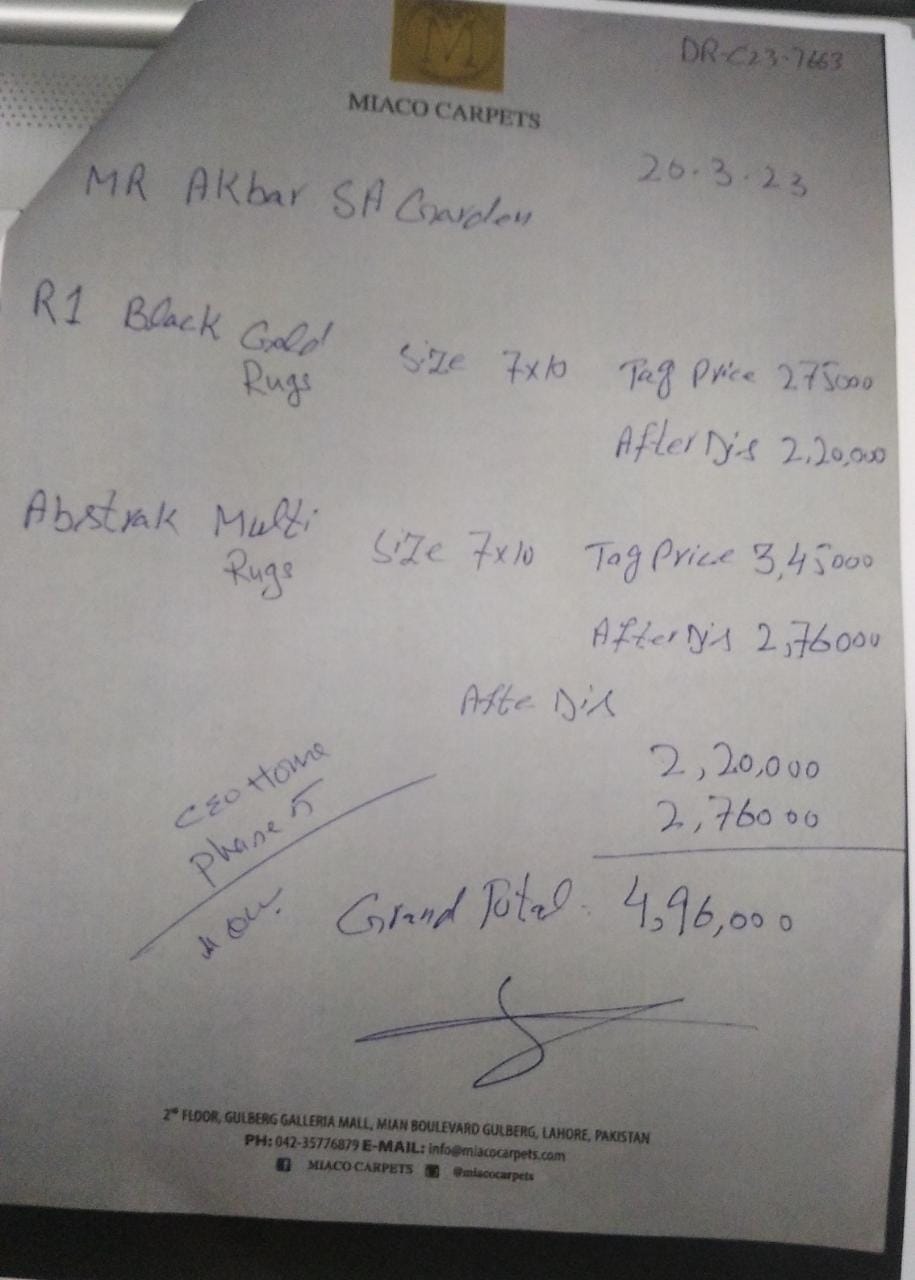 M
DR-C23-7663
MIACO CARPETS
20.3.23
MR Akbar SA Garden
R1 Black Gold Rugs Size 7x10 Tag Price 275000
After Dis 2,20,000
Abstrak Multi Rugs Size 7x10 Tag Price 3,45000
After Dis 2,76000
Afte Dis
2,20,000
2,76000
CEO Home
Phase 5
Grand Total - 4,96,000
2nd FLOOR, GULBERG GALLERIA MALL, MIAN BOULEVARD GULBERG, LAHORE, PAKISTAN
PH: 042-35776879 E-MAIL: info@miacocarpets.com
MIACO CARPETS @miacocarpets